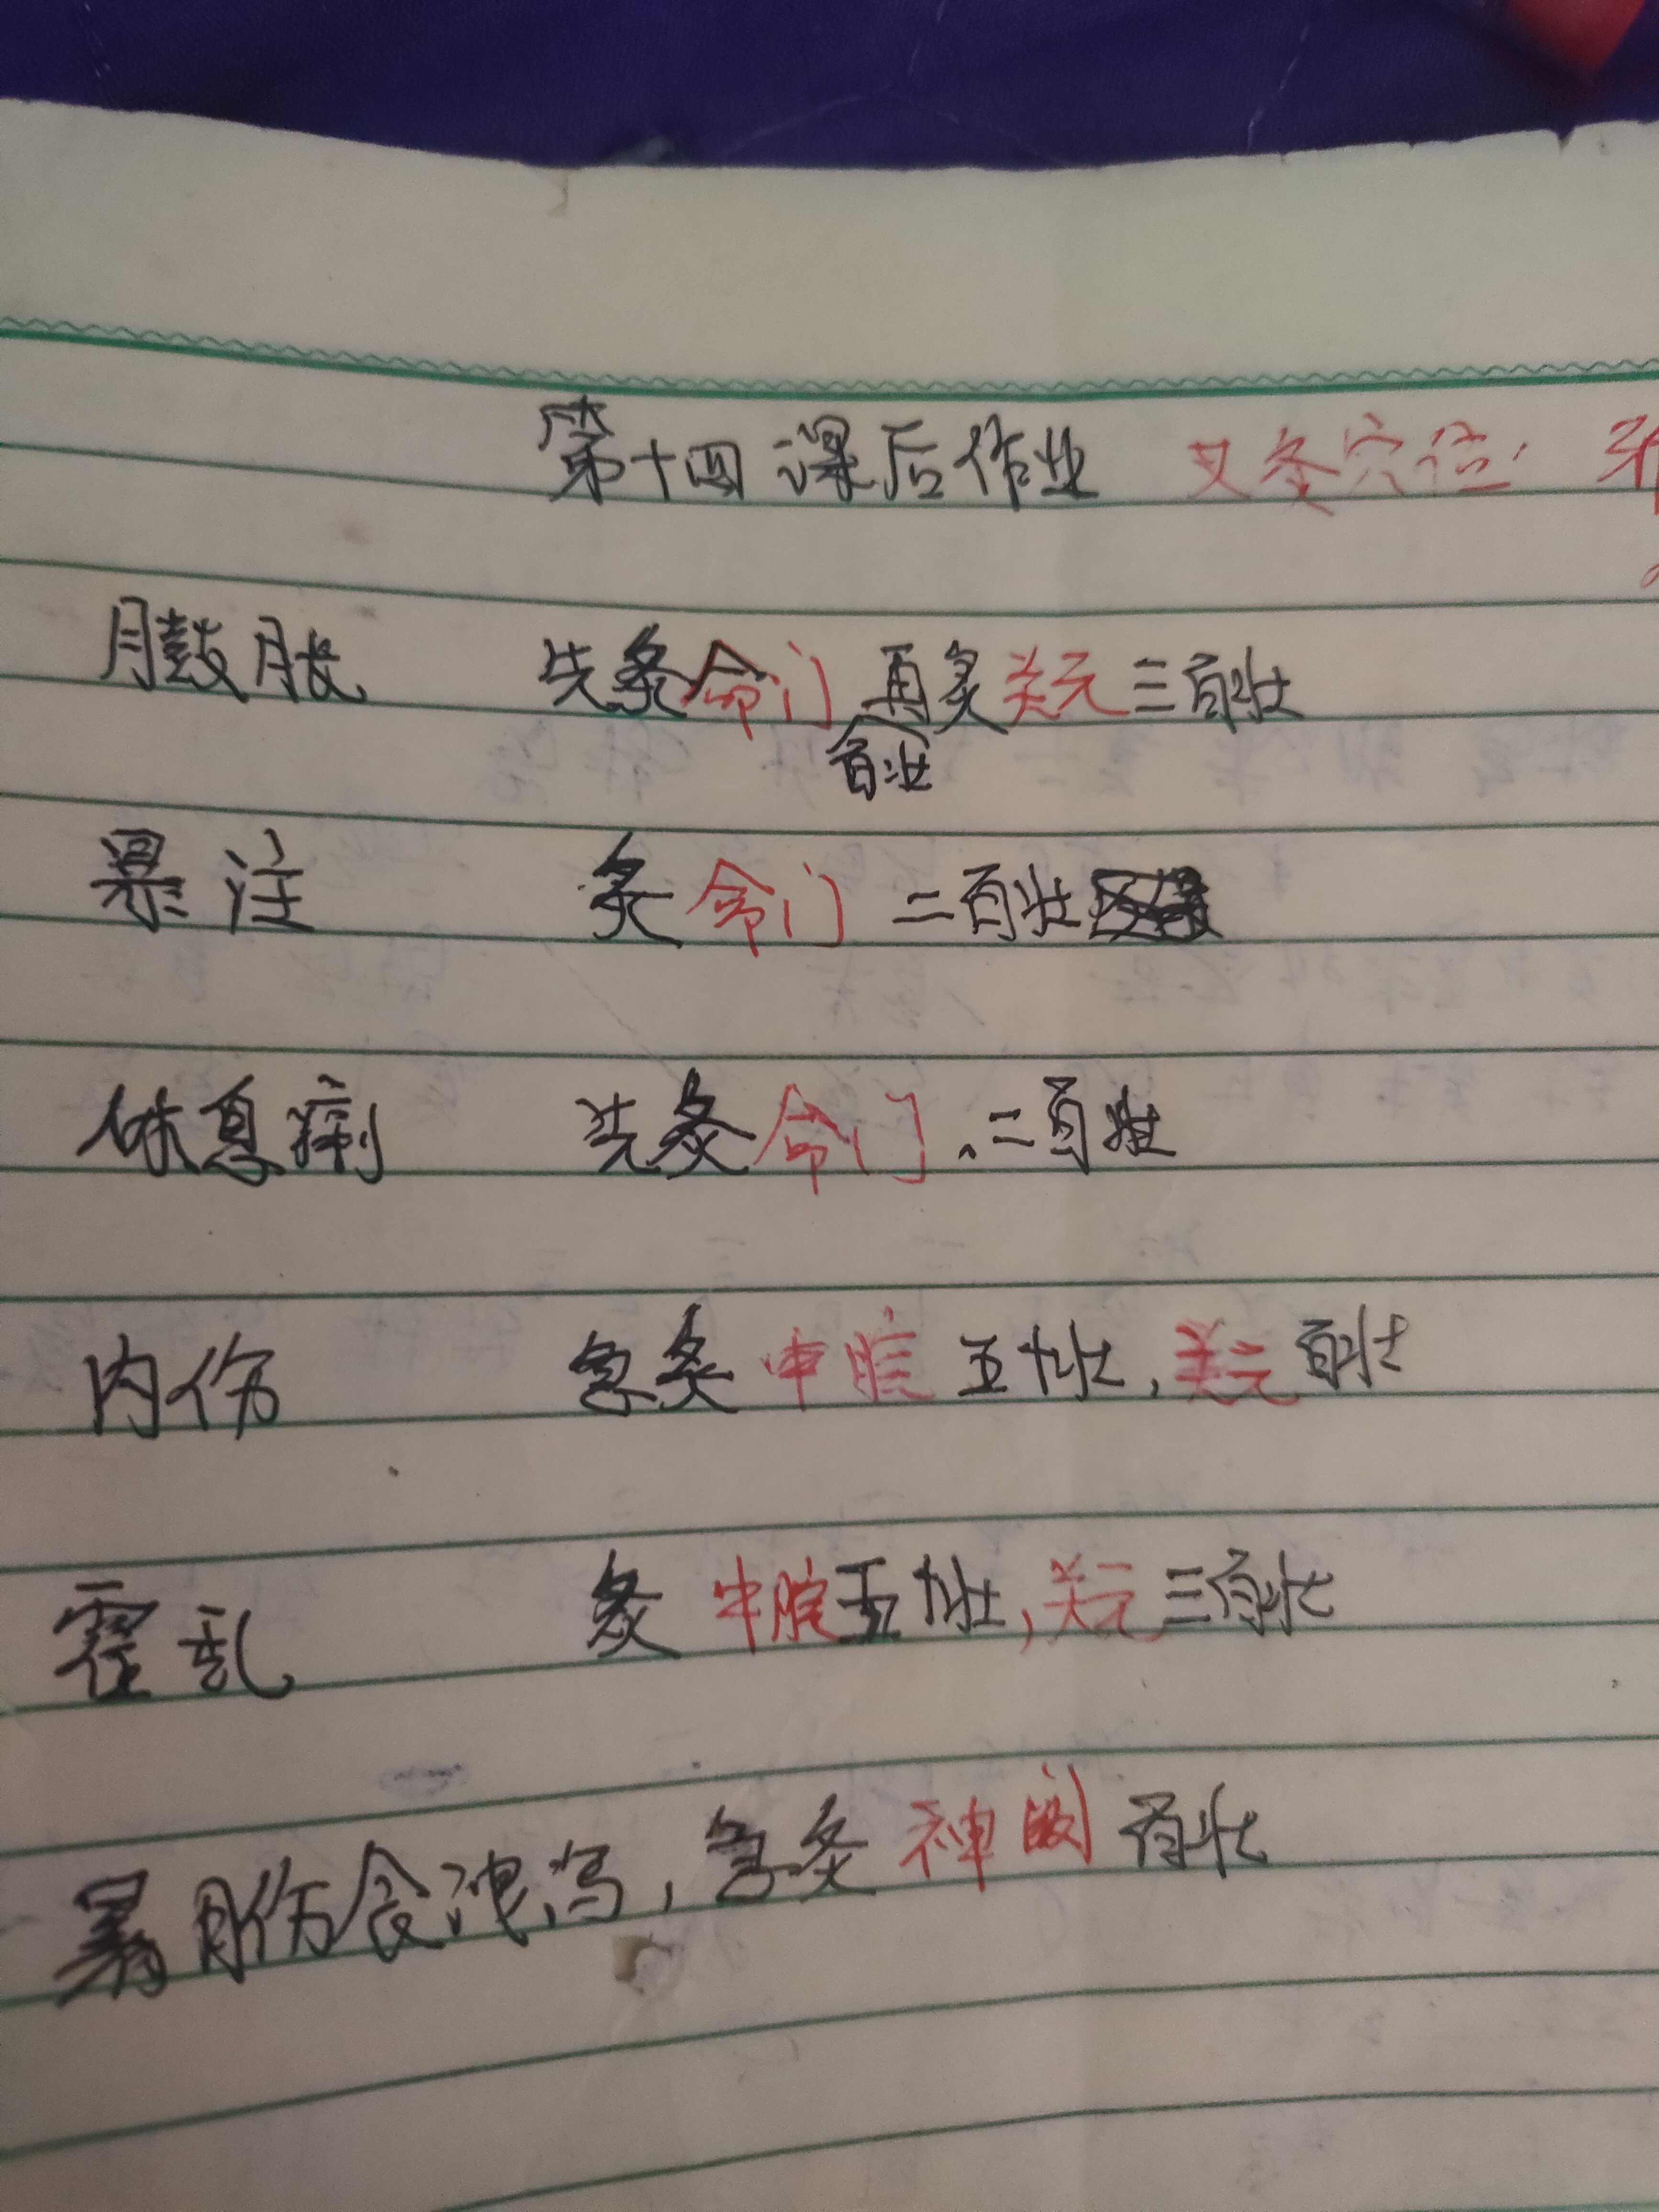 第十四课后作业 艾灸穴位:
臌胀 先灸命门百壮再灸关元三百壮
暴注 灸命门二百壮
休息痢 先灸命门、二百壮
内伤 急灸中脘五十壮,关元百壮
霍乱 灸中脘五十壮,关元三百壮
暴伤食泄泻,急灸神阙百壮